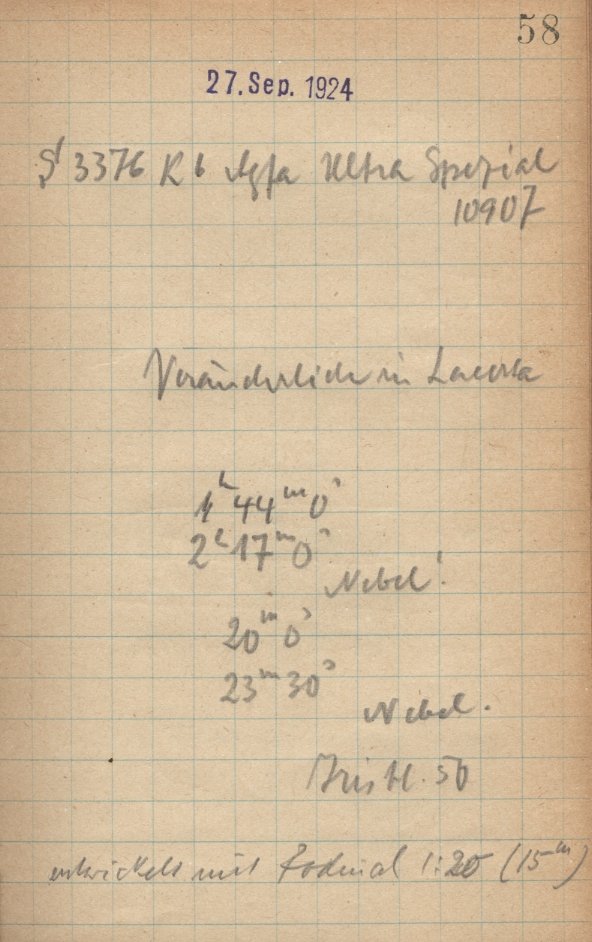 58
27. Sep. 1924
S 3376 R b Agfa Ultra Spezial
10907
Veränderliche in Lacerta
1h 44m 0s
2h 17m 0s
Nebel!
20m 0s
23m 30s
Nebel.
Irisbl. 50
entwickelt mit Rodinal 1:20 (15m)